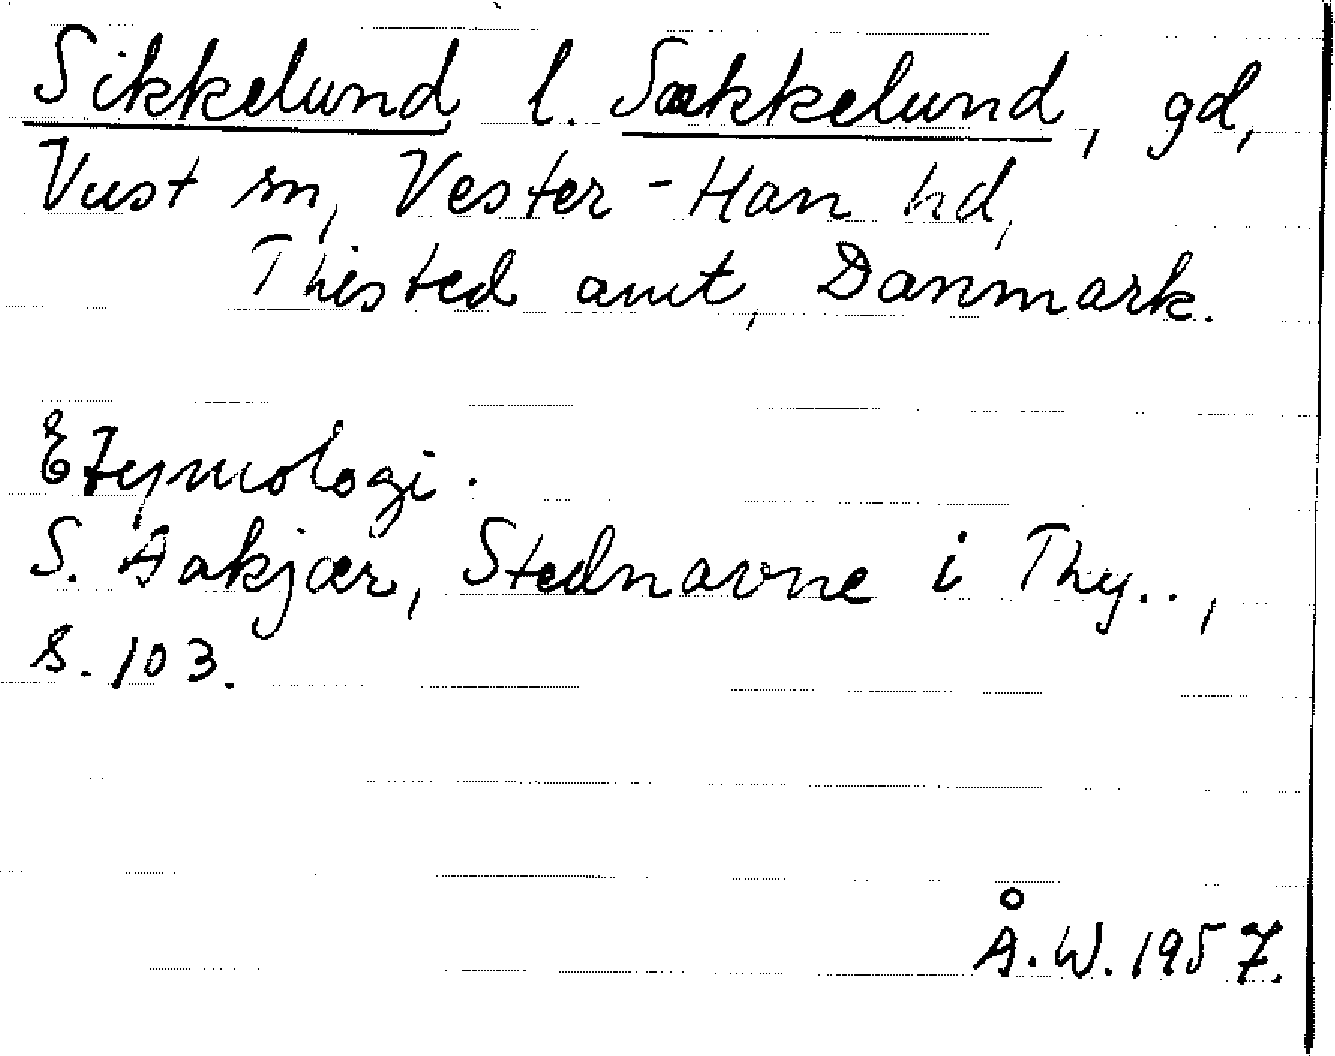 Sikkelund l. Sækkelund, gd,
Vust sn, Vester-Han hd,
Thisted amt, Danmark.
Etymologi.
S. Aakjær, Stednavne i Thy..,
s. 103.
Å.W. 1957.